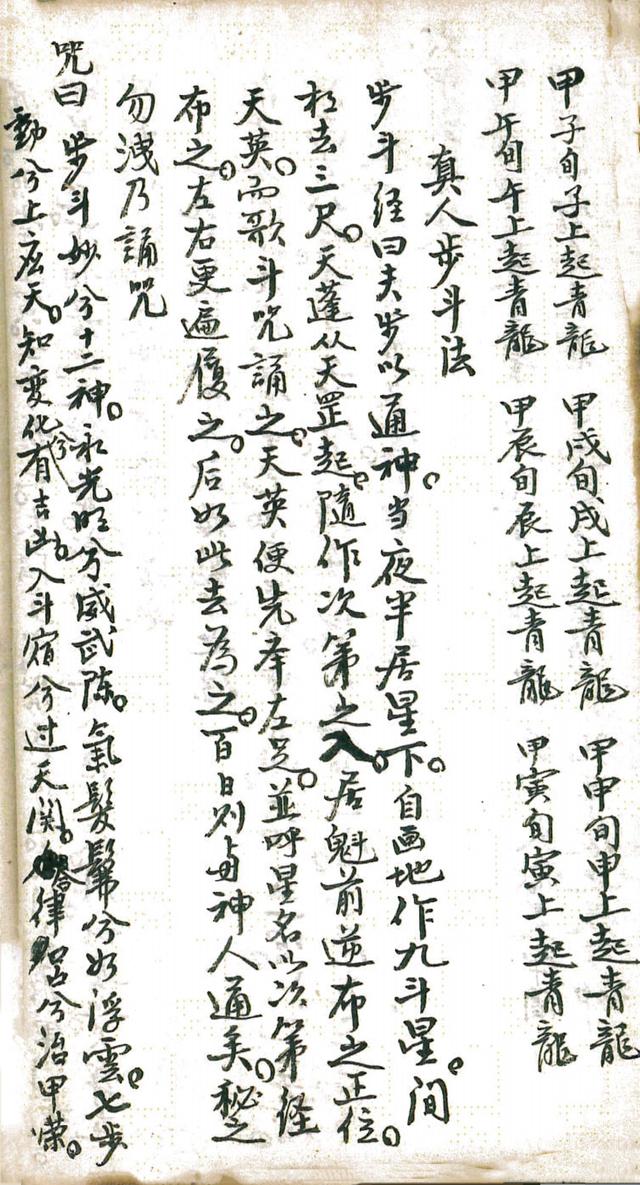 甲子旬子上起青龍 甲戌旬戌上起青龍 甲申旬申上起青龍
甲午旬午上起青龍 甲辰旬辰上起青龍 甲寅旬寅上起青龍
真人步斗法
步斗经曰夫步以通神。当夜半居星下。自画地作九斗星。间
相去三尺。天蓬从天罡起。随作次第之入。居魁前逆布之正位。
天英。而歌斗咒誦之。天英便先举左足。並呼星名以次第经
布之。左右更遍履之。后如此去為之。百日则与神人通矣。秘之
勿洩乃誦咒
咒曰 步斗妙兮十二神。承光明兮威武陈。氣髣髴兮如浮雲。七步
動兮上应天。知变化兮有吉凶。入斗宿兮过天関。合律吕兮治甲